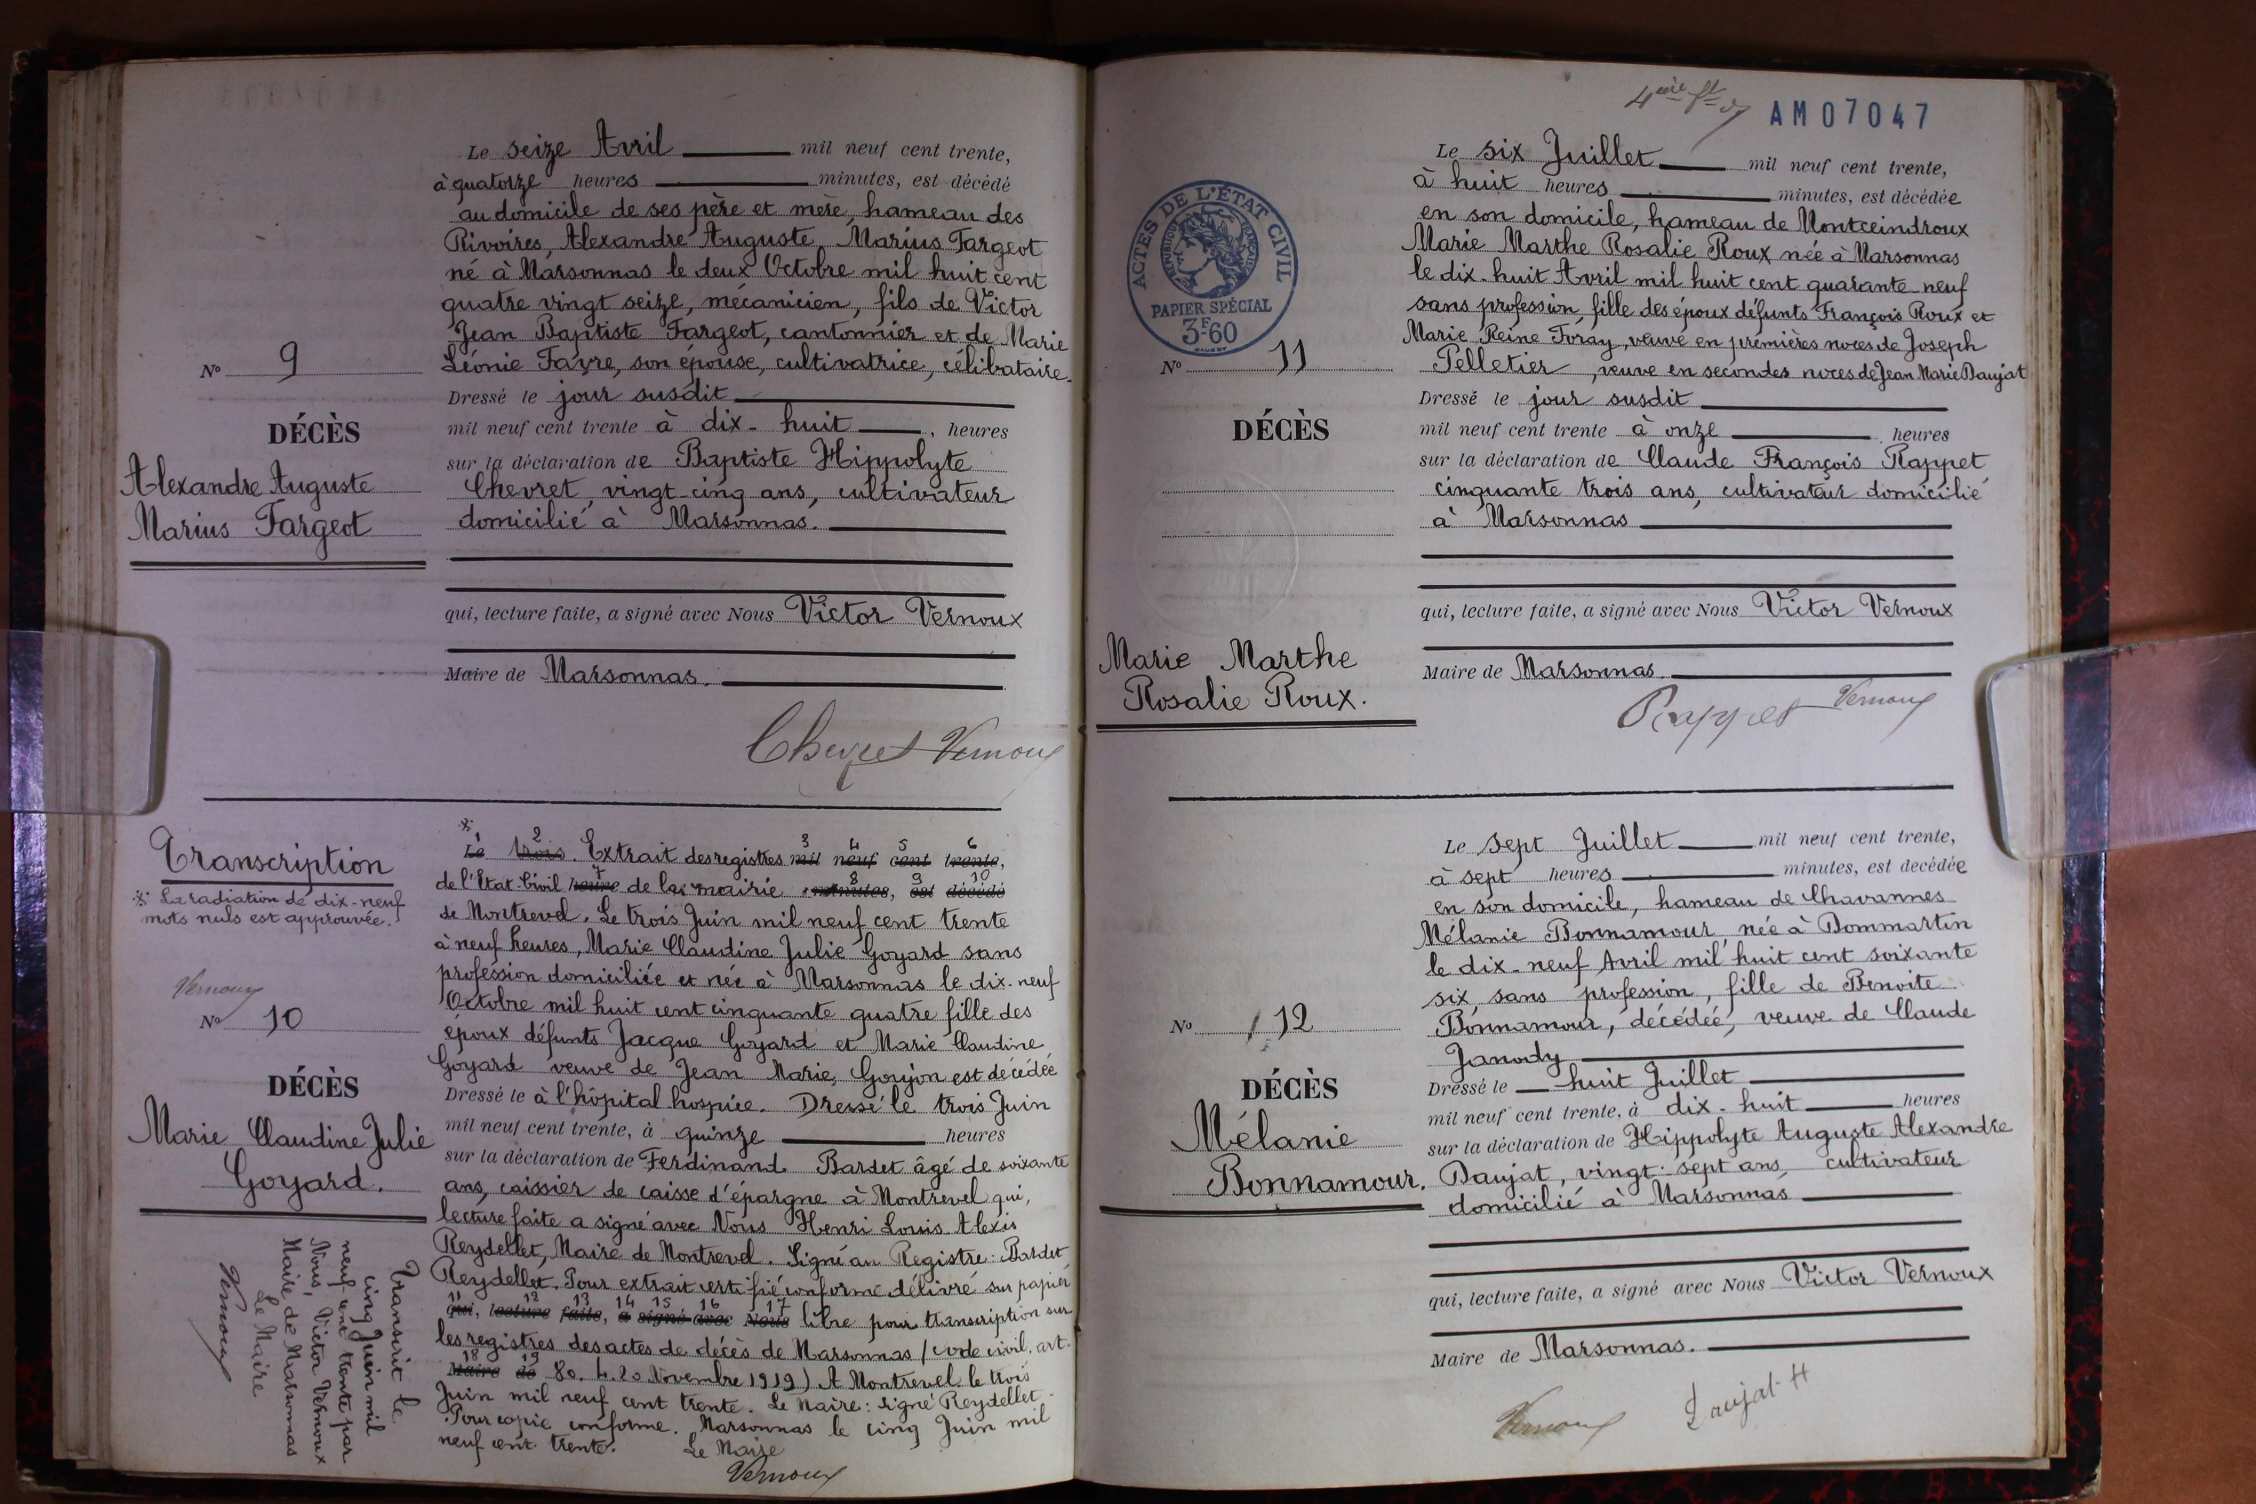 Le seize Avril mil neuf cent trente,
à quatorze heures minutes, est décédé
au domicile de ses père et mère, hameau des
Rivoires, Alexandre Auguste, Marius Fargeot
né à Marsonnas le deux Octobre mil huit cent
quatre vingt seize, mécanicien, fils de Victor
Jean Baptiste Fargeot, cantonnier et de Marie
Léonie Favre, son épouse, cultivatrice, célibataire.
No 9
DÉCÈS
Alexandre Auguste
Marius Fargeot
Dressé le jour susdit
mil neuf cent trente à dix-huit, heures
sur la déclaration de Baptiste Hippolyte
Chevret, vingt-cinq ans, cultivateur
domicilié à Marsonnas.
qui, lecture faite, a signé avec Nous Victor Vernoux
Maire de Marsonnas.
Chevret Vernoux
Transcription
※ La radiation de dix-neuf
mots nuls est approuvée.
Vernoux
No 10
DÉCÈS
Marie Claudine Julie
Goyard.
Transcrit le
cinq Juin mil
neuf cent trente par
Nous, Victor Vernoux
Maire de Marsonnas
Le Maire
Vernoux
※ 1 2 3 4 5 6
Le trois. Extrait des registres mil neuf cent trente,
7 8 9 10
de l'Etat-Civil heure de la mairie minutes, est décédé
de Montrevel. Le trois Juin mil neuf cent trente
à neuf heures, Marie Claudine Julie Goyard sans
profession domiciliée et née à Marsonnas le dix-neuf
Octobre mil huit cent cinquante quatre fille des
époux défunts Jacque Goyard et Marie Claudine
Goyard veuve de Jean Marie, Goujon est décédée
Dressé le à l'hôpital hospice. Dressé le trois Juin
mil neuf cent trente, à quinze heures
sur la déclaration de Ferdinand Bardet âgé de soixante
ans, caissier de caisse d'épargne à Montrevel qui,
lecture faite a signé avec Nous Henri Louis Alexis
Reydellet, Maire de Montrevel. Signé au Registre: Bardet
Reydellet. Pour extrait certifié conforme délivré sur papier
11 12 13 14 15 16 17
qui, lecture faite, a signé avec Nous libre pour transcription sur
les registres des actes de décès de Marsonnas / code civil. art.
18 19
Maire de 80. L. 20 Novembre 1919) A Montrevel le trois
Juin mil neuf cent trente. Le Maire: signé Reydellet.
Pour copie conforme. Marsonnas le cinq Juin mil
neuf cent trente. Le Maire
Vernoux
AM07047
ACTES DE L'ÉTAT CIVIL
RÉPUBLIQUE FRANÇAISE
PAPIER SPÉCIAL
3F60
No 11
DÉCÈS
Marie Marthe
Rosalie Roux.
Le six Juillet mil neuf cent trente,
à huit heures minutes, est décédée
en son domicile, hameau de Montceindroux
Marie Marthe Rosalie Roux née à Marsonnas
le dix-huit Avril mil huit cent quarante neuf
sans profession, fille des époux défunts François Roux et
Marie Reine Foray, veuve en premières noces de Joseph
Pelletier, veuve en secondes noces de Jean Marie Daujat
Dressé le jour susdit
mil neuf cent trente à onze heures
sur la déclaration de Claude François Rappet
cinquante trois ans, cultivateur domicilié
à Marsonnas
qui, lecture faite, a signé avec Nous Victor Vernoux
Maire de Marsonnas.
Rappet Vernoux
No 12
DÉCÈS
Mélanie
Bonnamour.
Le sept Juillet mil neuf cent trente,
à sept heures minutes, est decédée
en son domicile, hameau de Chavannes
Mélanie Bonnamour née à Dommartin
le dix-neuf Avril mil huit cent soixante
six, sans profession, fille de Benoite
Bonnamour, décédée, veuve de Claude
Janody
Dressé le huit Juillet
mil neuf cent trente, à dix-huit heures
sur la déclaration de Hippolyte Auguste Alexandre
Daujat, vingt-sept ans, cultivateur
domicilié à Marsonnas
qui, lecture faite, a signé avec Nous Victor Vernoux
Maire de Marsonnas.
Vernoux Daujat H